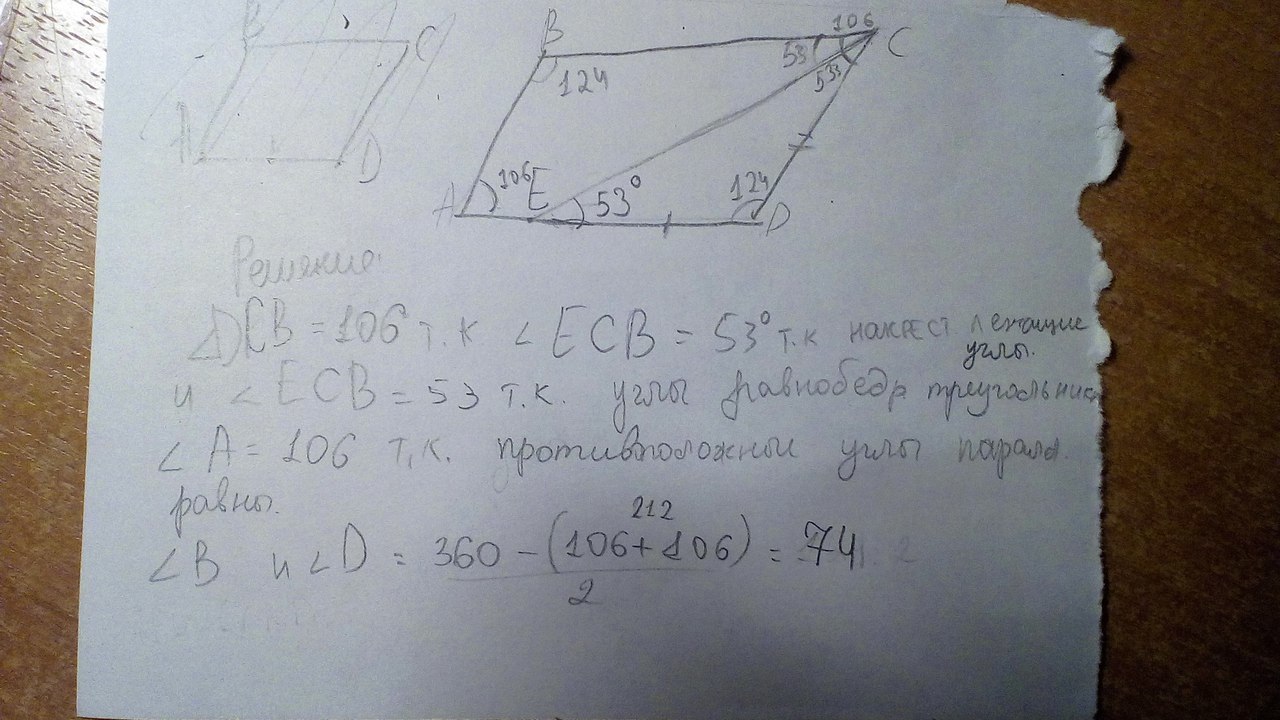 B
C
A
D
B
124
53
106
C
53
A
106
E
53°
124
D
Решение.
∠DCB = 106 т.к ∠ECB = 53° т.к накрест лежащие углы.
и ∠ECB = 53 т.к. углы равнобедр треугольник
∠A = 106 т.к. противположный углы парал.
равны.
212
∠B и ∠D = 360 - (106+106) = 74
2